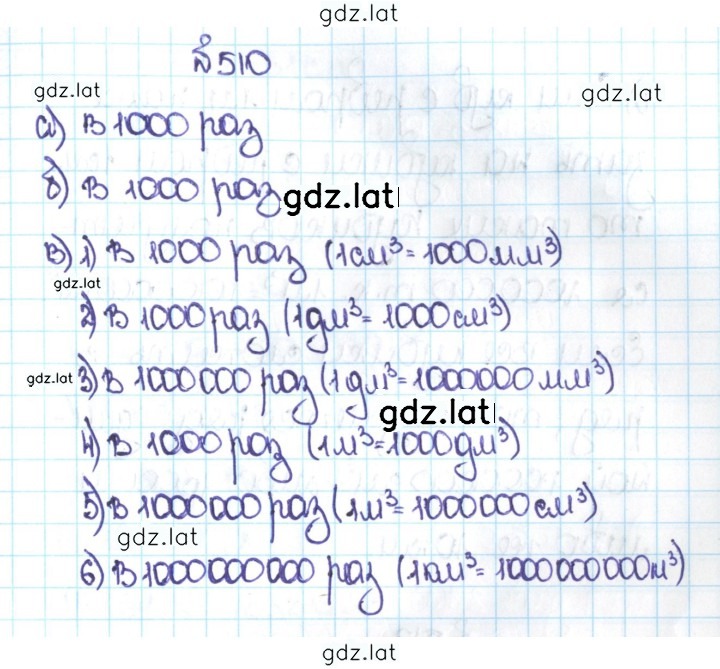 gdz.lat
№510
gdz.lat
gdz.lat
а) В 1000 раз
б) В 1000 раз
gdz.lat
в) 1) В 1000 раз (1см³=1000мм³)
gdz.lat
2) В 1000 раз (1дм³=1000см³)
gdz.lat
3) В 1000000 раз (1дм³=1000000мм³)
gdz.lat
4) В 1000 раз (1м³=1000дм³)
5) В 1000000 раз (1м³=1000000см³)
gdz.lat
6) В 1000000000 раз (1км³=1000000000м³)
gdz.lat